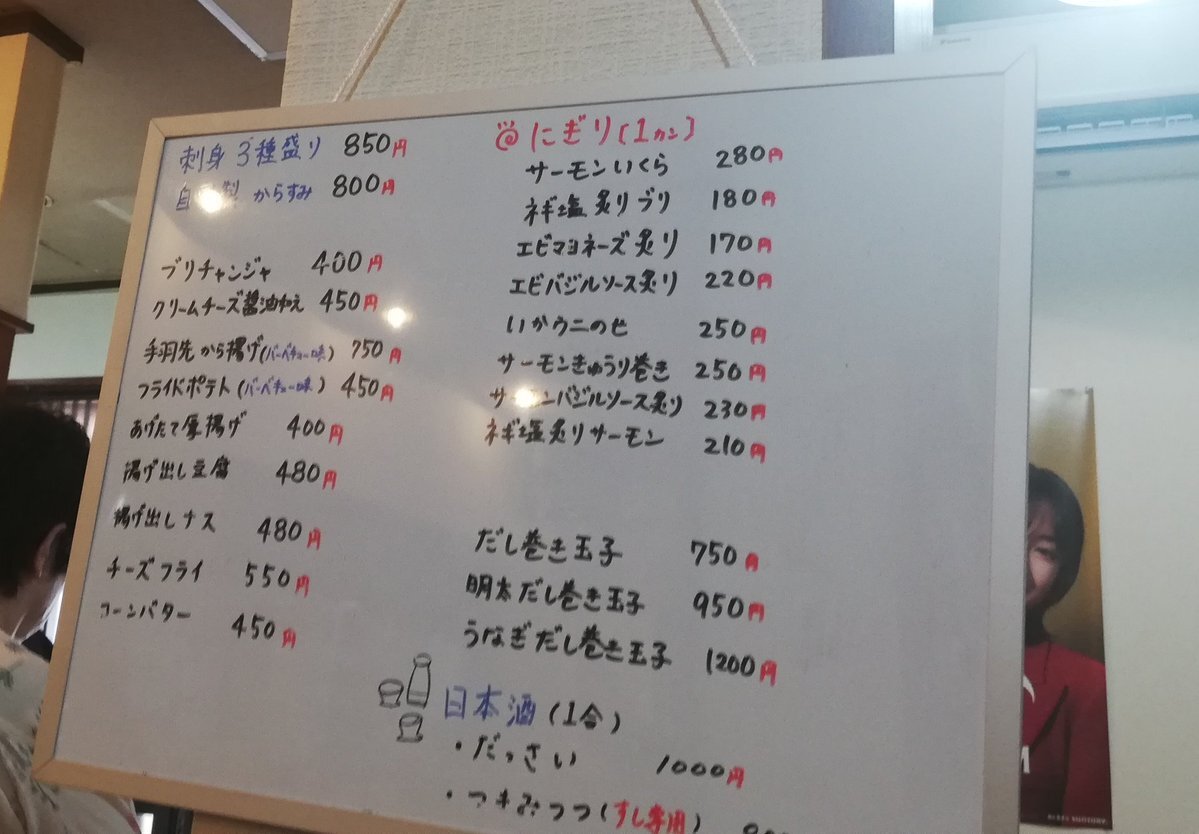 刺身 3種盛り 850円
自家製 からすみ 800円
ブリチャンジャ 400円
クリームチーズ醤油和え 450円
手羽先から揚げ(バーベキュー味) 750円
フライドポテト(バーベキュー味) 450円
あげたて厚揚げ 400円
揚げ出し豆腐 480円
揚げ出しナス 480円
チーズフライ 550円
コーンバター 450円
にぎり(1カン)
サーモンいくら 280円
ネギ塩炙りブリ 180円
エビマヨネーズ炙り 170円
エビバジルソース炙り 220円
いかウニのせ 250円
サーモンきゅうり巻き 250円
サーモンバジルソース炙り 230円
ネギ塩炙りサーモン 210円
だし巻き玉子 750円
明太だし巻き玉子 950円
うなぎだし巻き玉子 1200円
日本酒(1合)
・だっさい 1000円
(すし専用)